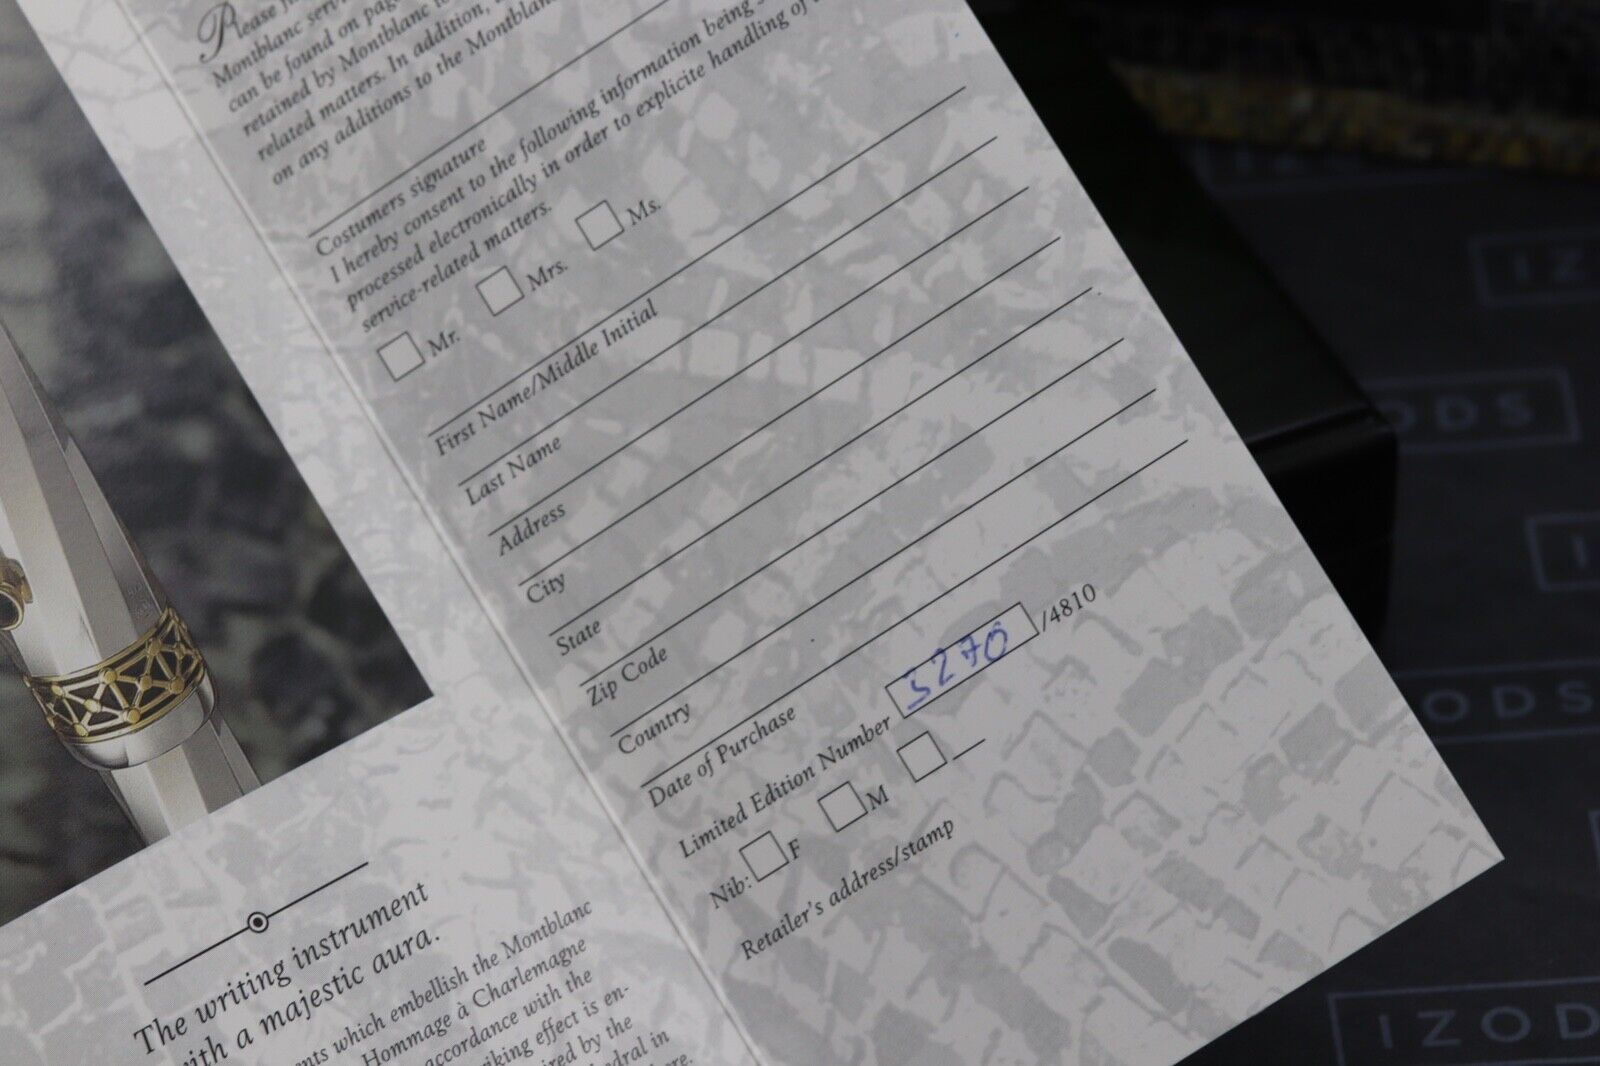 Please
Montblanc
can be found on page
retained by Montblanc
related matters. In addition,
on any additions to the Montblanc
Costumers signature
I hereby consent to the following information being
processed electronically in order to explicite handling of
service-related matters.
Mr. Mrs. Ms.
First Name/Middle Initial
Last Name
Address
City
State
Zip Code
Country
Date of Purchase
Limited Edition Number 3270 /4810
Nib: F M
Retailer's address/stamp
The writing instrument
with a majestic aura.
which embellish the Montblanc
Hommage à Charlemagne
accordance with the
effect is en-
by the
in
IZODS
ODS
IZODS
IZOD